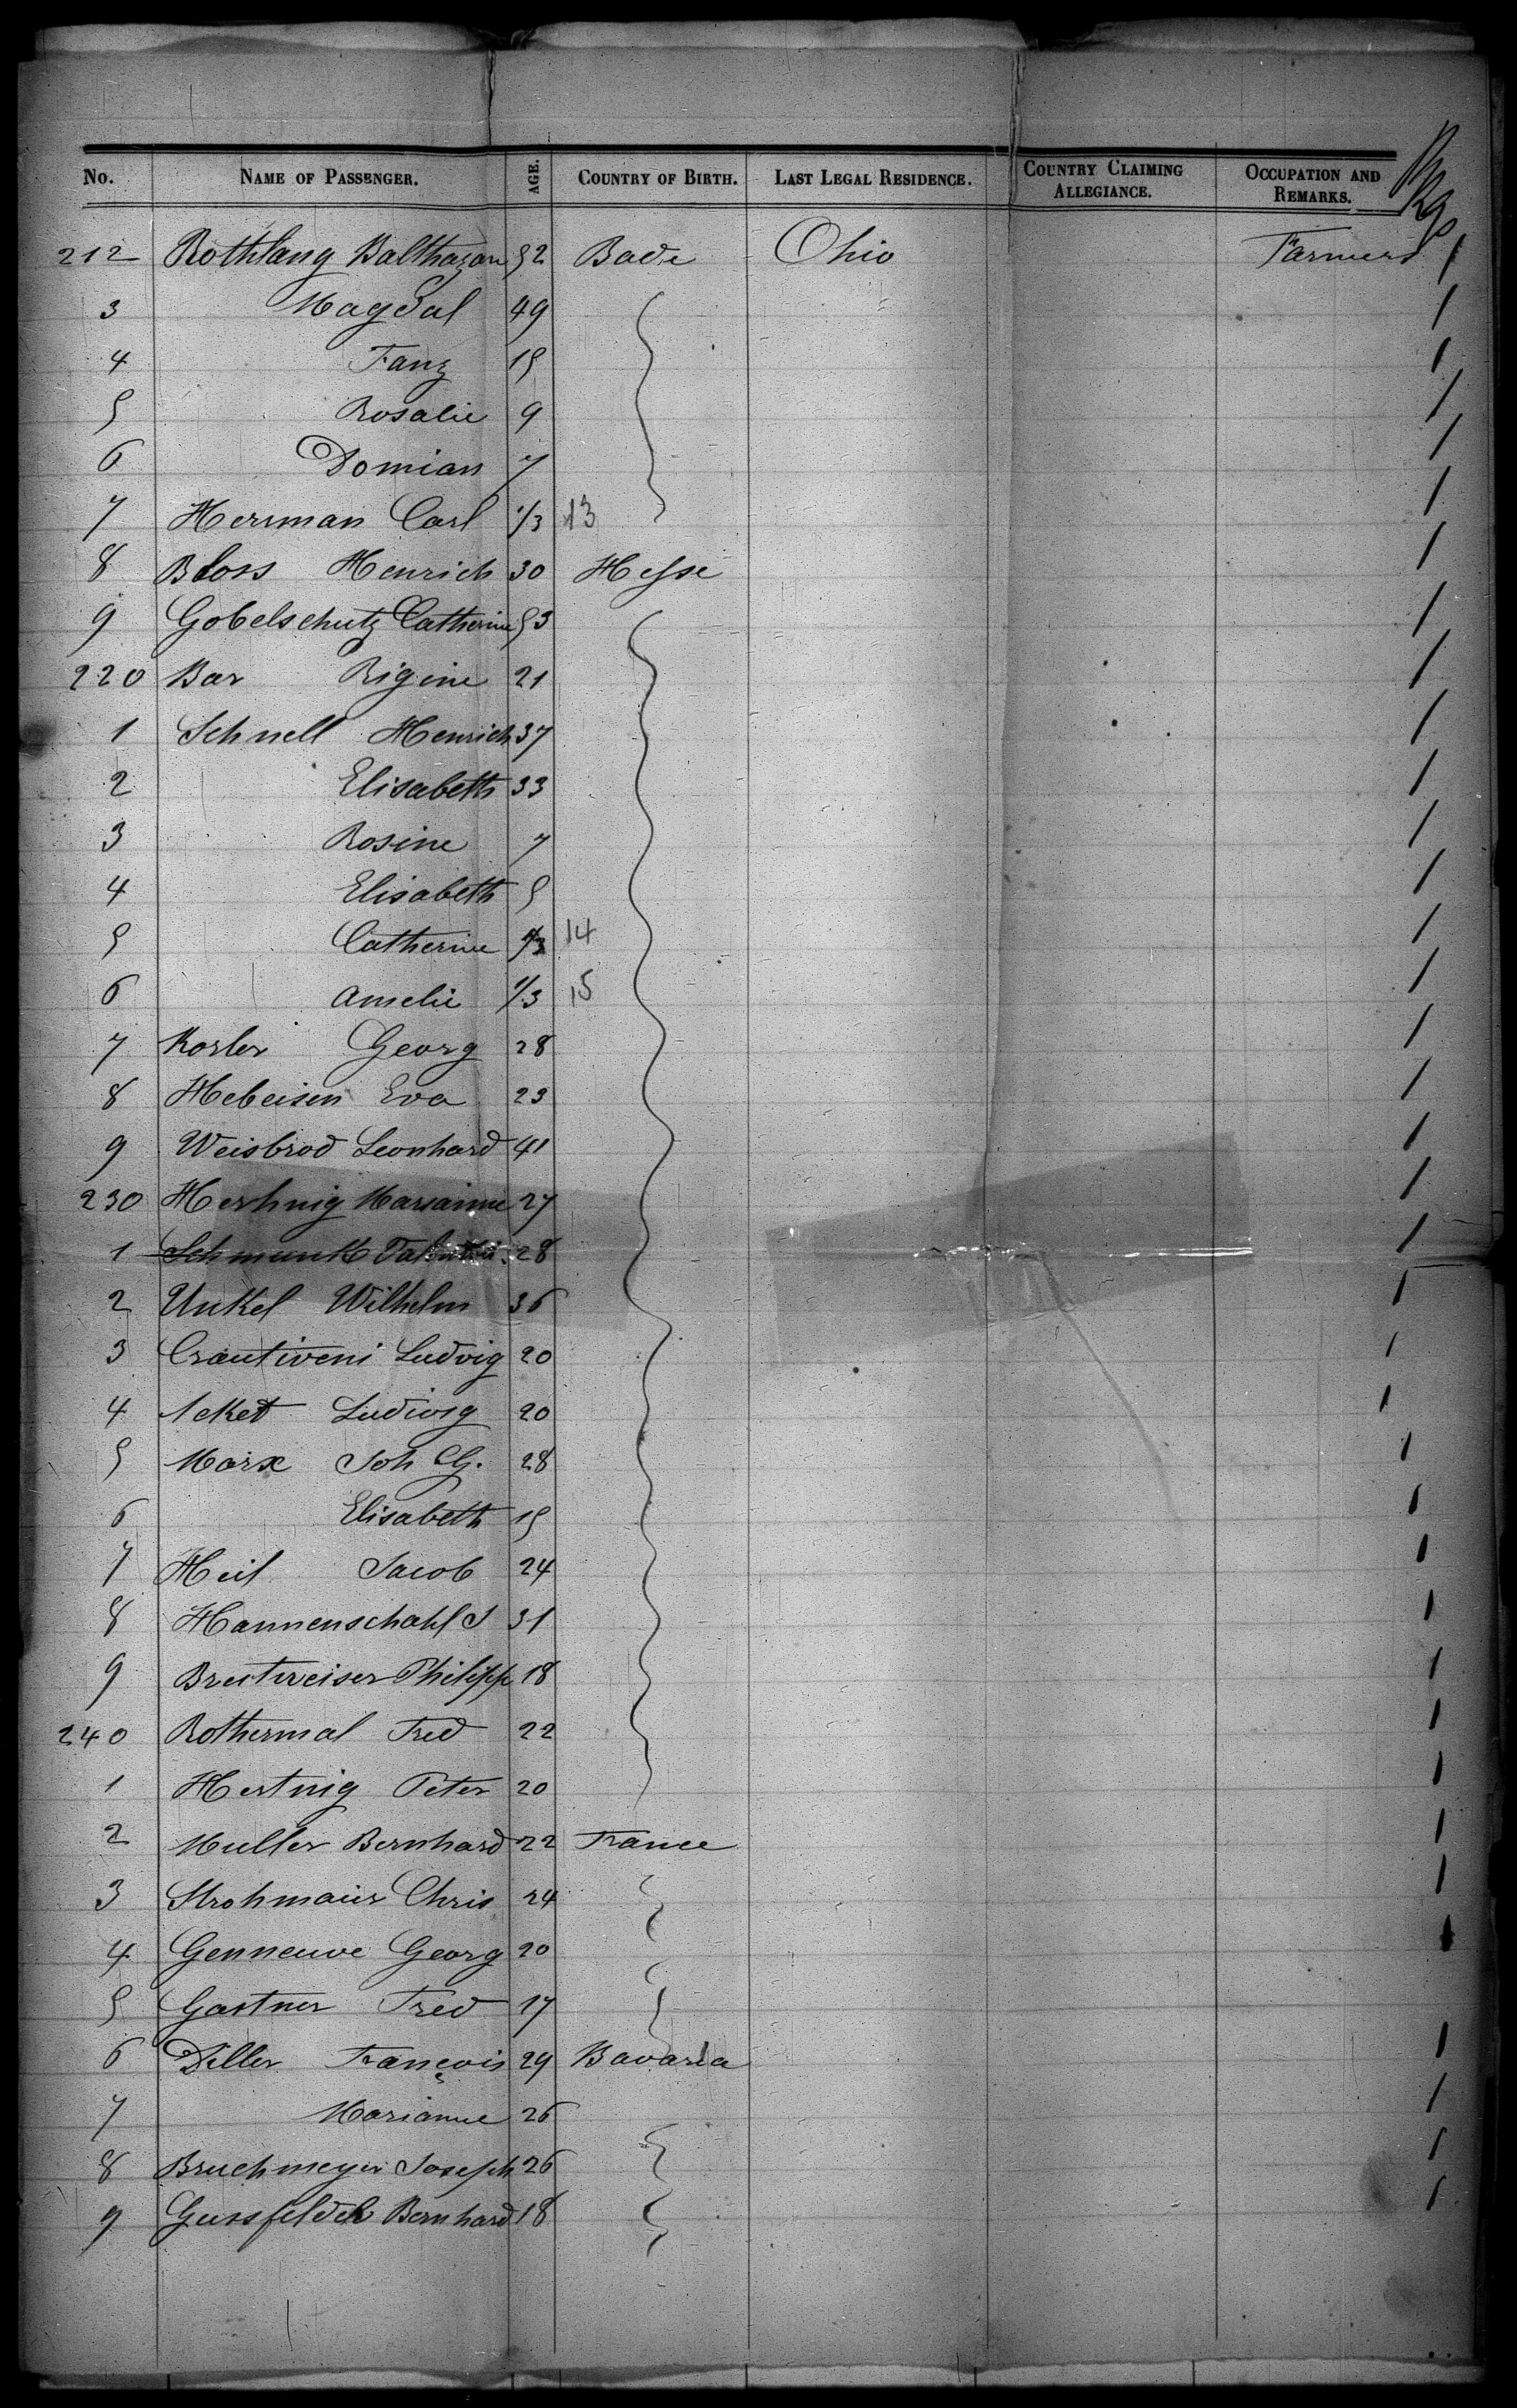 No. NAME OF PASSENGER. AGE. COUNTRY OF BIRTH. LAST LEGAL RESIDENCE. COUNTRY CLAIMING ALLEGIANCE. OCCUPATION AND REMARKS. Pkgs
212 Rothlang Balthazar 52 Bade Ohio Farmers 1
3 Magdal 49 1
4 Fanz 15 1
5 Rosalie 9 1
6 Domian 7 1
7 Herrman Carl 1/3 13 1
8 Bloss Henrich 30 Hesse 1
9 Gobelschutz Catherine 53 1
220 Bar Rigine 21 1
1 Schnell Henrich 37 1
2 Elisabeth 33 1
3 Rosine 7 1
4 Elisabeth 5 1
5 Catherine 14 1
6 Amelie 1/3 15 1
7 Korler Georg 28 1
8 Hebeisen Eva 23 1
9 Weisbrod Leonhard 41 1
230 Herhnig Marianne 27 1
1 Schmunk 28 1
2 Unkel Wilhelm 36 1
3 Crautiveni Ludvig 20 1
4 Acket Ludwig 20 1
5 Marx Joh G. 28 1
6 Elisabeth 15 1
7 Heil Jacob 24 1
8 Hannenschahl J 31 1
9 Breitweiser Philipp 18 1
240 Rothermal Fred 22 1
1 Hertnig Peter 20 1
2 Muller Bernhard 22 France 1
3 Strohmaier Chris 24 1
4 Genneuve Georg 20 1
5 Gastner Fred 17
6 Diller François 29 Bavaria 1
7 Marianne 26 1
8 Bruchmeyer Joseph 26 1
9 Gussfelder Bernhard 18 1